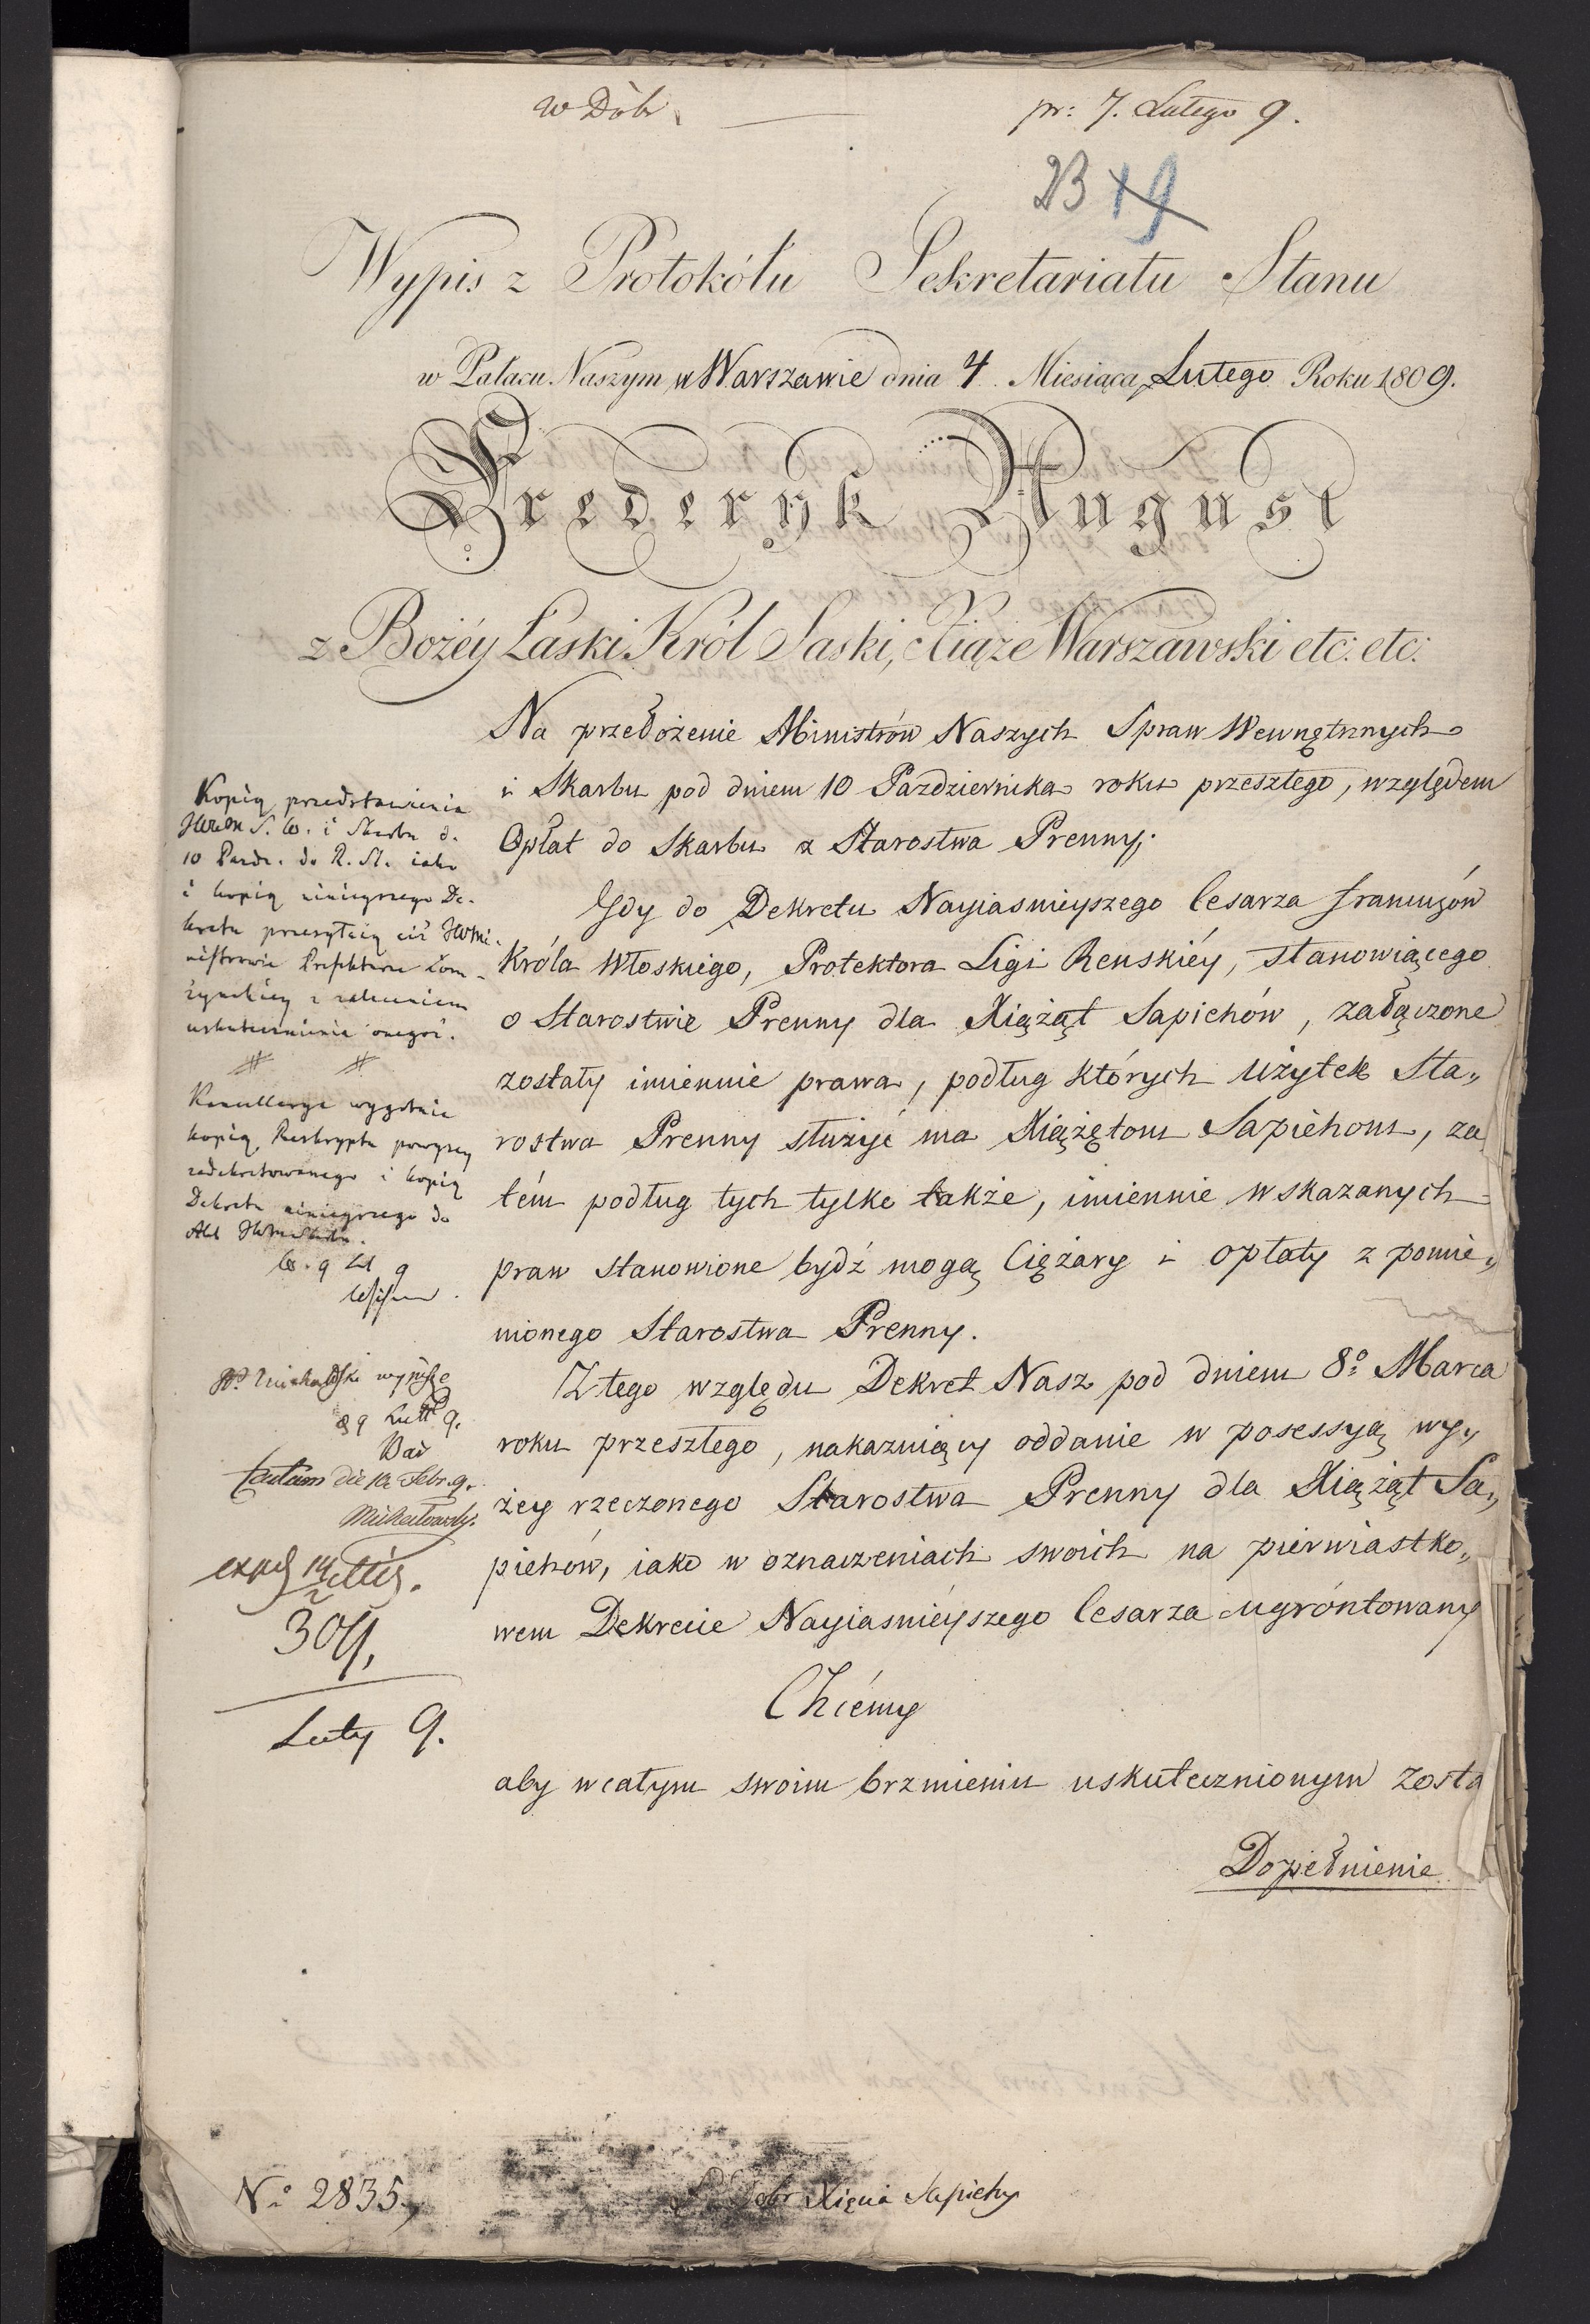 w Dóbr
pr: 7. Lutego 9.
23 19
Wypis z Protokółu Sekretariatu Stanu
w Pałacu Naszym w Warszawie dnia 4 Miesiąca Lutego Roku 1809.
Fryderyk August
z Bożéy Łaski Król Saski, Xiąże Warszawski etc: etc:
Na przełożenie Ministrów Naszych Spraw Wewnętrznych
i Skarbu pod dniem 10 Pazdziernika roku przeszłego, względem
Opłat do Skarbu z Starostwa Prenny;
Gdy do Dekretu Nayiasnieyszego Cesarza francuzów
Króla Włoskiego, Protektora Ligi Renskiéy, stanowiącego
o Starostwie Prenny dla Xiążąt Sapiehów, załączone
zostały imiennie prawa, podług których Użytek Sta„
rostwa Prenny służyć ma Xiążętom Sapiehom, za
tém podług tych tylko także, imiennie wskazanych
praw stanowione bydź mogą Ciężary i opłaty z pomie„
nionego Starostwa Prenny.
Z tego względu Dekret Nasz pod dniem 8º Marca
roku przeszłego, nakazuiący oddanie w posessyą wy„
żey rzeczonego Starostwa Prenny dla Xiążąt Sa„
piehów, iako w oznaczeniach swoich na pierwiastko„
wem Dekrecie Nayiasniéyszego Cesarza ugróntowany
Chcémy
aby w całym swoim brzmieniu uskutecznionym zosta
Dopełnienie
Kopią przedstawienia
S. W. i Skarbu d.
10 Pazdz. do R. St. iako
i kopią ninieyszego De-
kretu przesyłaią się
Prefektowi Łom-
żynskiey z zaleceniem
uskutecznienia onegoż.
# #
Kancellarya wygotuie
kopią Reskryptu powyzey
zadekretowanego i kopią
Dekretu ninieyszego do
Akt
W. 9 Lt 9
Michalski wypisze
9 Lutt 9.
factum die 12 Febr. 9.
Michałowsky.
exped 14
304,
Luty 9.
Nº 2835.
Dobr Xięcia Sapiehy